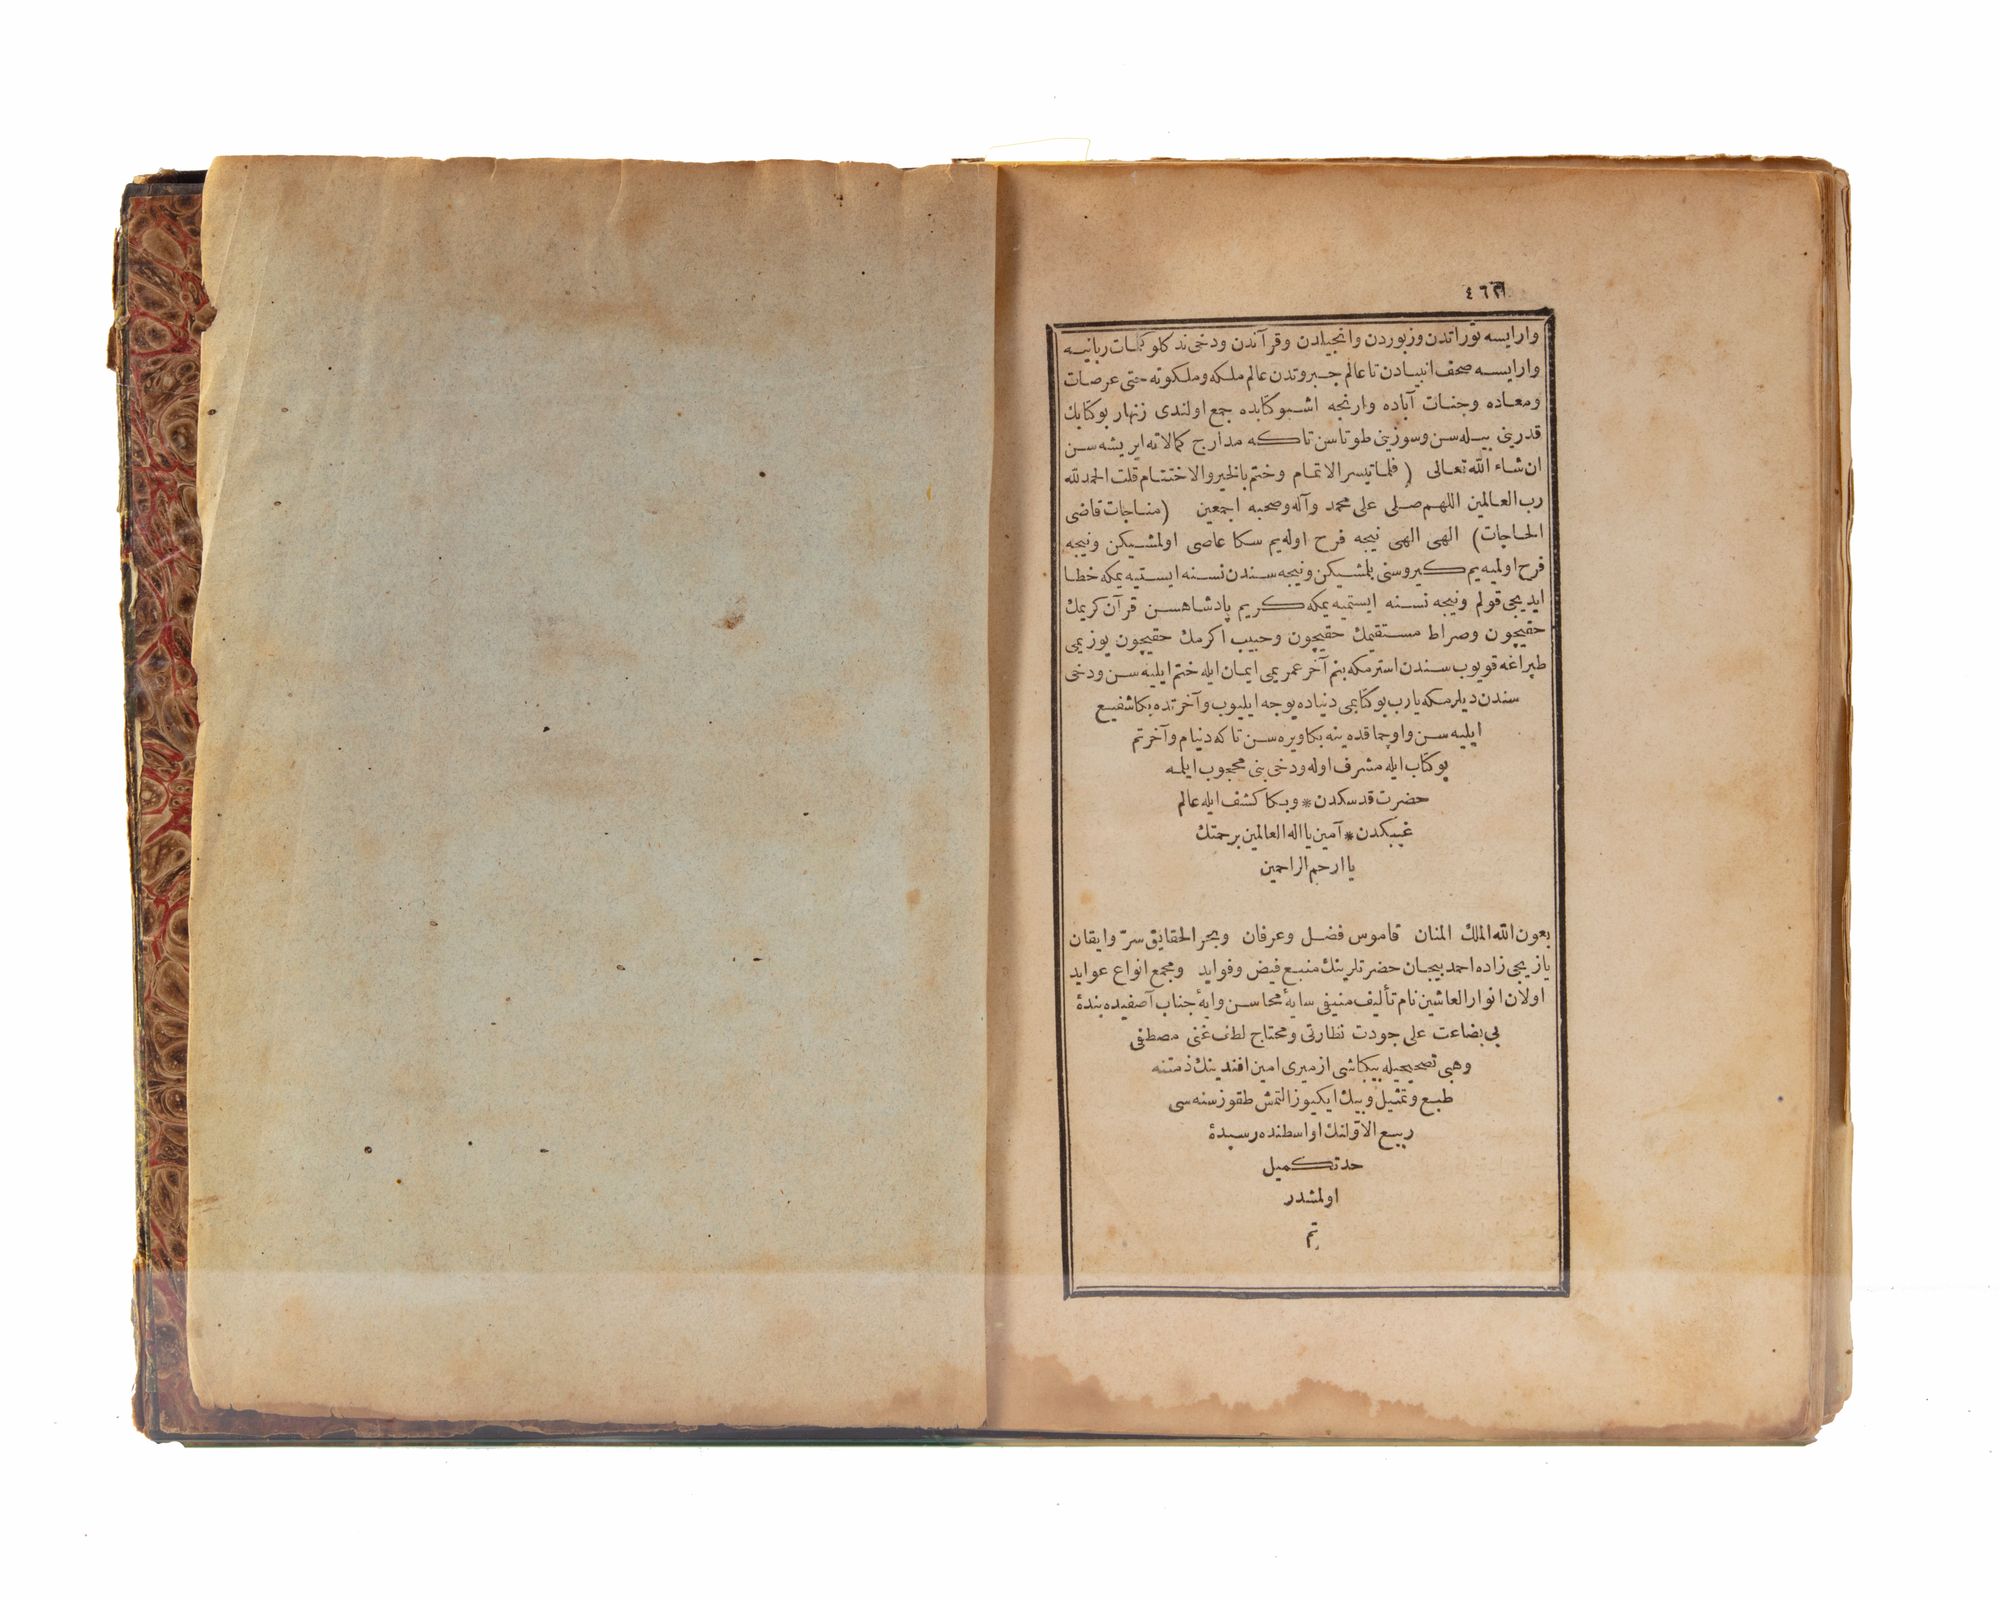 ٤٦٢
وار ایسه توراتدن وزبوردن وانجیلدن وقرآندن ودخی نه کلو کلمات ربانیه
وار ایسه صحف انبیادن تا عالم جبروتدن عالم ملکه وملکوته حتی عرصات
ومعاده وجنات آباده وارنجه اشبو کتابده جمع اولندی زنهار بو کتابك
قدرینی بیله سن وسوزینی طوتاسن تاکه مدارج کمالاته ایریشه سن
ان شاء الله تعالی (فلما تیسر الاتمام وختم بالخیر والاختتام قلت الحمد لله
رب العالمین اللهم صلی علی محمد وآله وصحبه اجمعین (مناجات قاضی
الحاجات) الهی الهی نیجه فرح اوله یم سکا عاصی اولمشیکن ونیجه
فرح اولمیه یم کیرو سنی بلمشیکن ونیجه سندن نسنه ایستیه یمکه خطا
ایدیجی قولم ونیجه نسنه ایستمیه یمکه کریم پادشاهسن قرآن کریمك
حقیچون وصراط مستقیمك حقیچون وحبیب اکرمك حقیچون یوزیمی
طپراغه قویوب سندن استرمکه بنم آخر عمریمی ایمان ایله ختم ایلیه سن ودخی
سندن دیلرمکه یارب بو کتابمی دنیاده یوجه ایلیوب وآخرتده بکا شفیع
ایلیه سن واوچماقده ینه بکا ویره سن تاکه دنیام وآخرتم
بو کتاب ایله مشرف اوله ودخی بنی محجوب ایلمه
حضرت قدسکدن * وبکا کشف ایله عالم
غیبکدن * آمین یا اله العالمین برحمتك
یا ارحم الراحمین
بعون الله الملك المنان قاموس فضل وعرفان وبحر الحقایق سرّ وایقان
یازیجی زاده احمد بیجان حضرتلرینك منبع فیض وفواید ومجمع انواع عواید
اولان انوار العاشقین نام تألیف منیفی سایۀ محاسن وایۀ جناب آصفیده بندۀ
بی بضاعت علی جودت نظارتی ومحتاج لطف غنی مصطفی
وهبی تصحیحیله بیکباشی ازمیری امین افندینك ذمتنه
طبع وتمثیل وبیك ایکیوز التمش طقوز سنه سی
ربیع الاولنك اواسطنده رسیدۀ
حد تکمیل
اولمشدر
تم